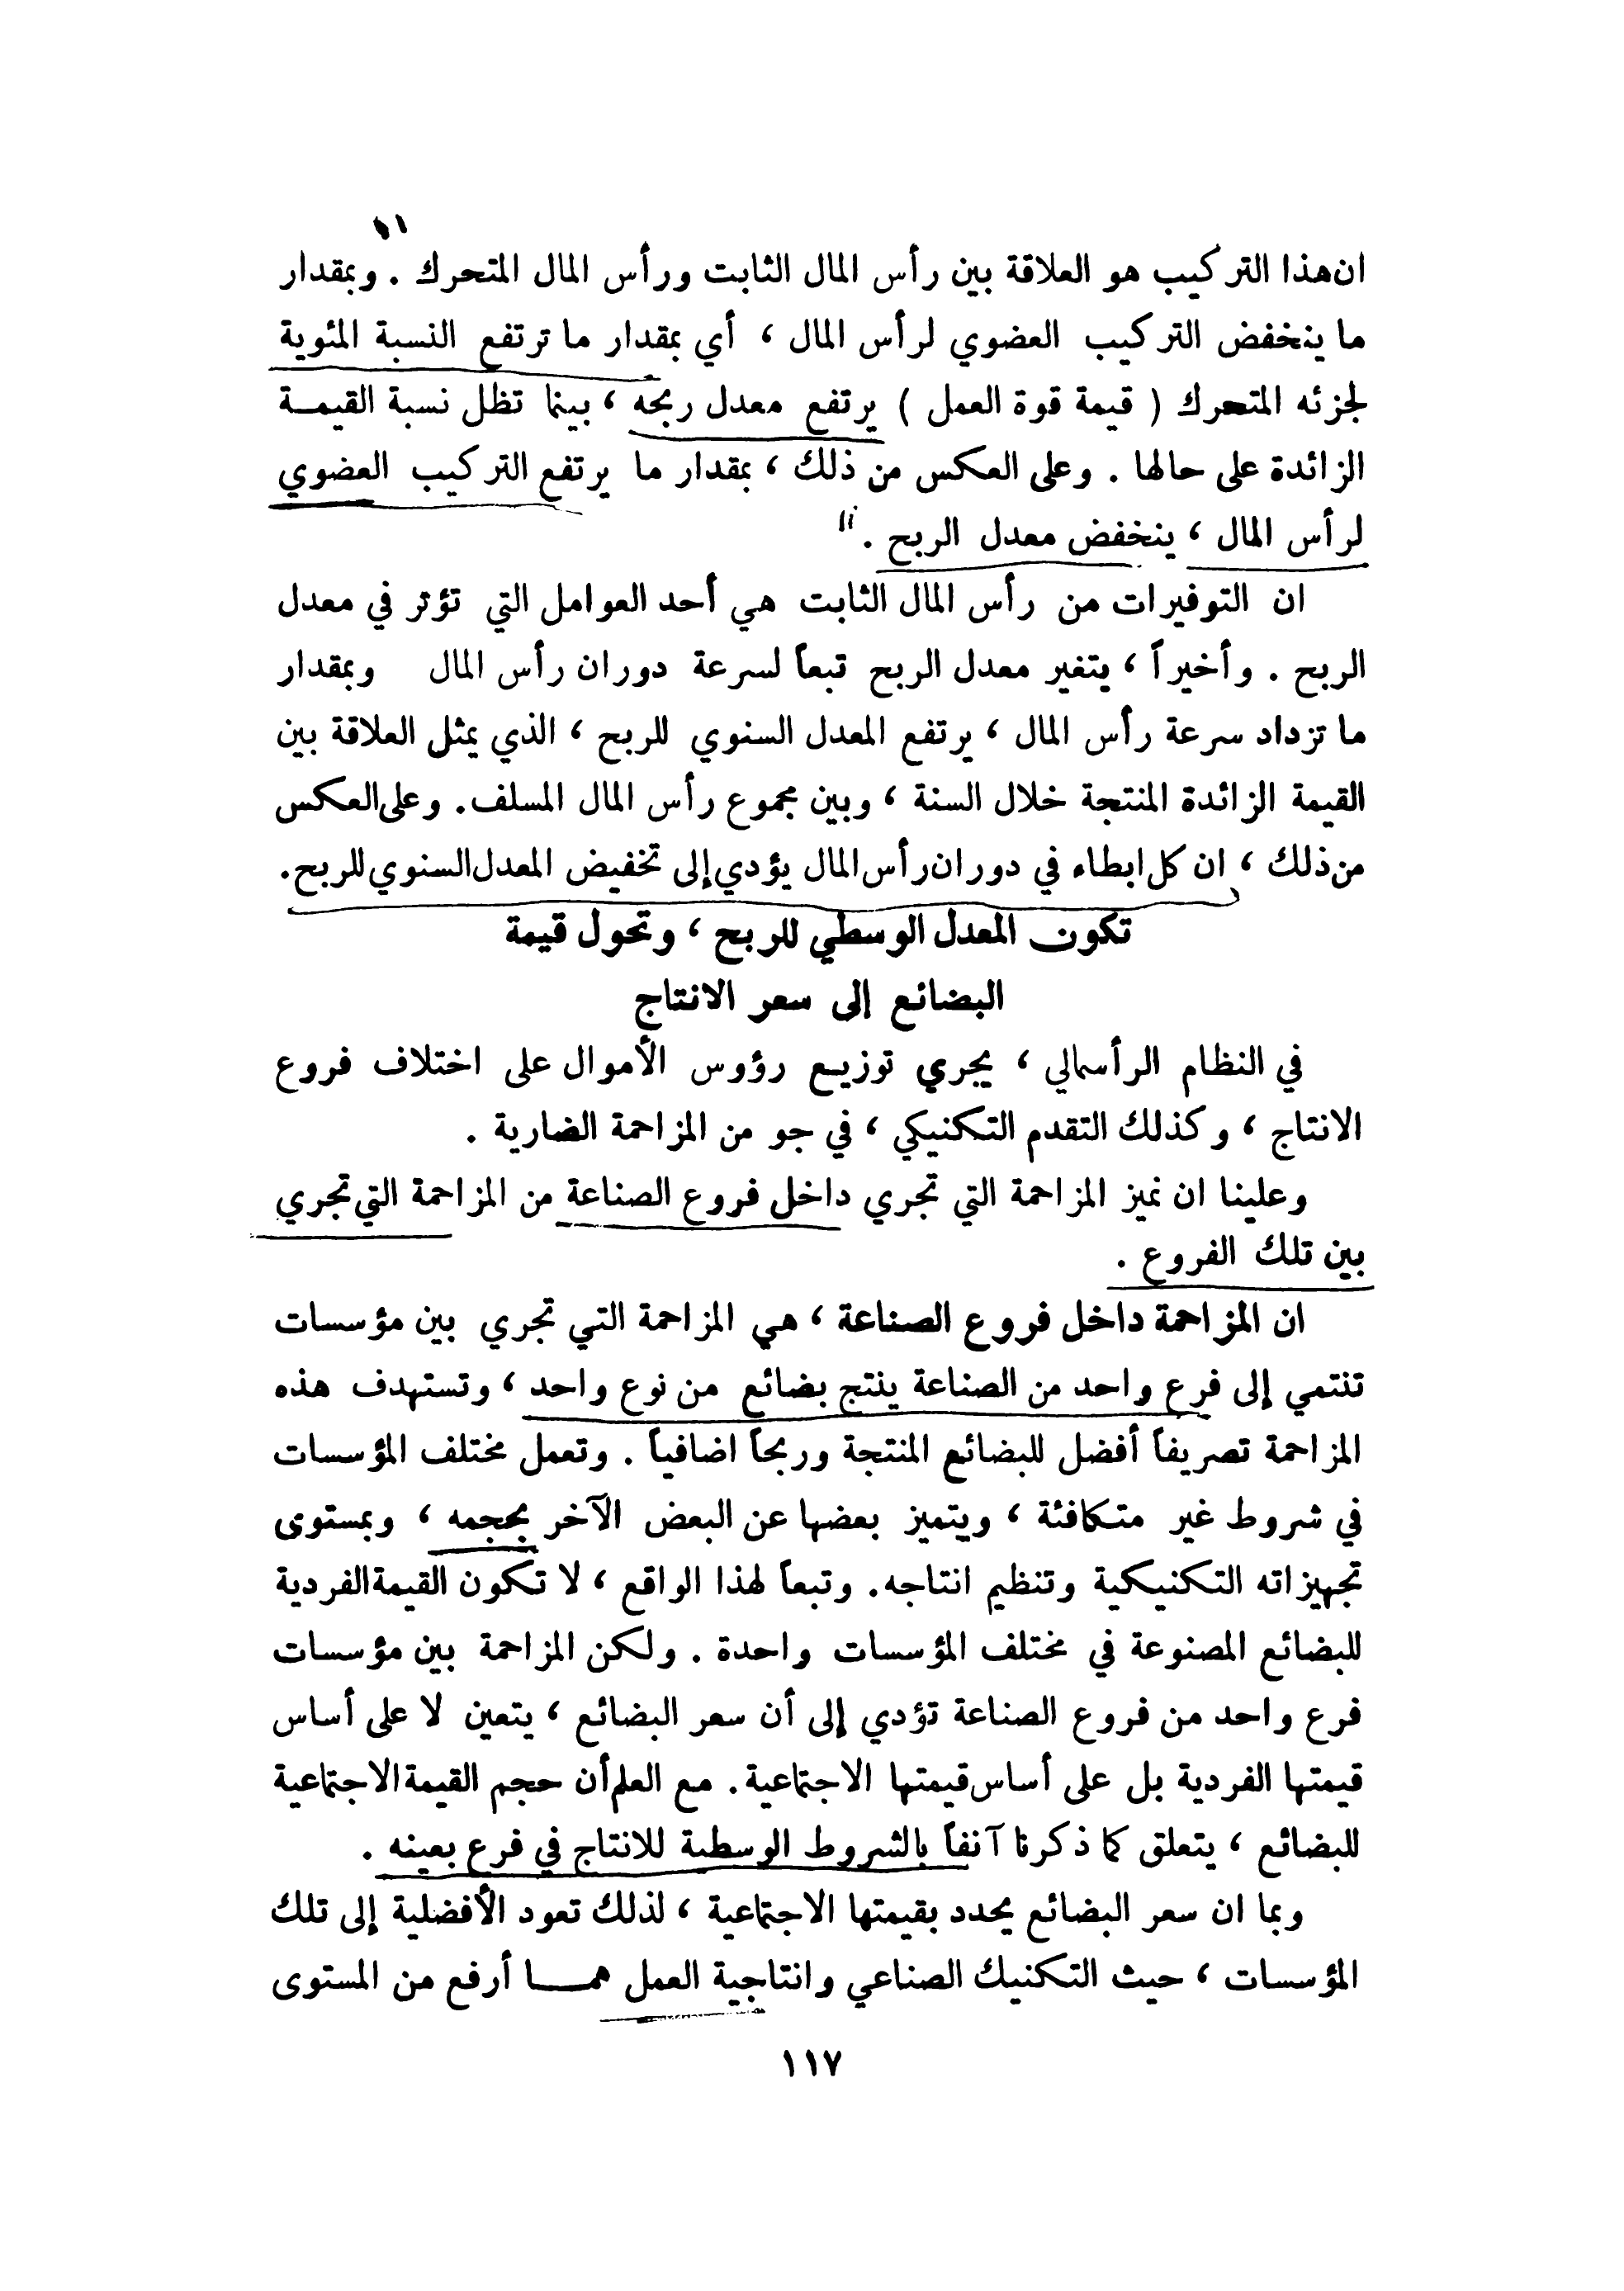 ان هذا التركيب هو العلاقة بين رأس المال الثابت ورأس المال المتحرك . وبمقدار
ما ينخفض التركيب العضوي لرأس المال ، أي بمقدار ما ترتفع النسبة المئوية
لجزئه المتحرك ( قيمة قوة العمل ) يرتفع معدل ربحه ، بينما تظل نسبة القيمـة
الزائدة على حالها . وعلى العكس من ذلك ، بمقدار ما يرتفع التركيب العضوي
لرأس المال ، ينخفض معدل الربح .
ان التوفيرات من رأس المال الثابت هي أحد العوامل التي تؤثر في معدل
الربح . وأخيراً ، يتغير معدل الربح تبعاً لسرعة دوران رأس المال وبمقدار
ما تزداد سرعة رأس المال ، يرتفع المعدل السنوي للربح ، الذي يمثل العلاقة بين
القيمة الزائدة المنتجة خلال السنة ، وبين مجموع رأس المال المسلف. وعلى العكس
من ذلك ، ان كل ابطاء في دوران رأس المال يؤدي إلى تخفيض المعدل السنوي للربح.
تكون المعدل الوسطي للربح ، وتحول قيمة
البضائع إلى سعر الانتاج
في النظام الرأسمالي ، يجري توزيع رؤوس الأموال على اختلاف فروع
الانتاج ، وكذلك التقدم التكنيكي ، في جو من المزاحمة الضارية .
وعلينا ان نميز المزاحمة التي تجري داخل فروع الصناعة من المزاحمة التي تجري
بين تلك الفروع .
ان المزاحمة داخل فروع الصناعة ، هي المزاحمة التي تجري بين مؤسسات
تنتمي إلى فرع واحد من الصناعة ينتج بضائع من نوع واحد ، وتستهدف هذه
المزاحمة تصريفاً أفضل للبضائع المنتجة وربحاً اضافياً . وتعمل مختلف المؤسسات
في شروط غير متكافئة ، ويتميز بعضها عن البعض الآخر بحجمه ، وبمستوى
تجهيزاته التكنيكية وتنظيم انتاجه. وتبعاً لهذا الواقع ، لا تكون القيمة الفردية
للبضائع المصنوعة في مختلف المؤسسات واحدة . ولكن المزاحمة بين مؤسسات
فرع واحد من فروع الصناعة تؤدي إلى أن سعر البضائع ، يتعين لا على أساس
قيمتها الفردية بل على أساس قيمتها الاجتماعية. مع العلم أن حجم القيمة الاجتماعية
للبضائع ، يتعلق كما ذكرنا آنفاً بالشروط الوسطية للانتاج في فرع بعينه .
وبما ان سعر البضائع يحدد بقيمتها الاجتماعية ، لذلك تعود الأفضلية إلى تلك
المؤسسات ، حيث التكنيك الصناعي وانتاجية العمل همـــا أرفع من المستوى
١١٧